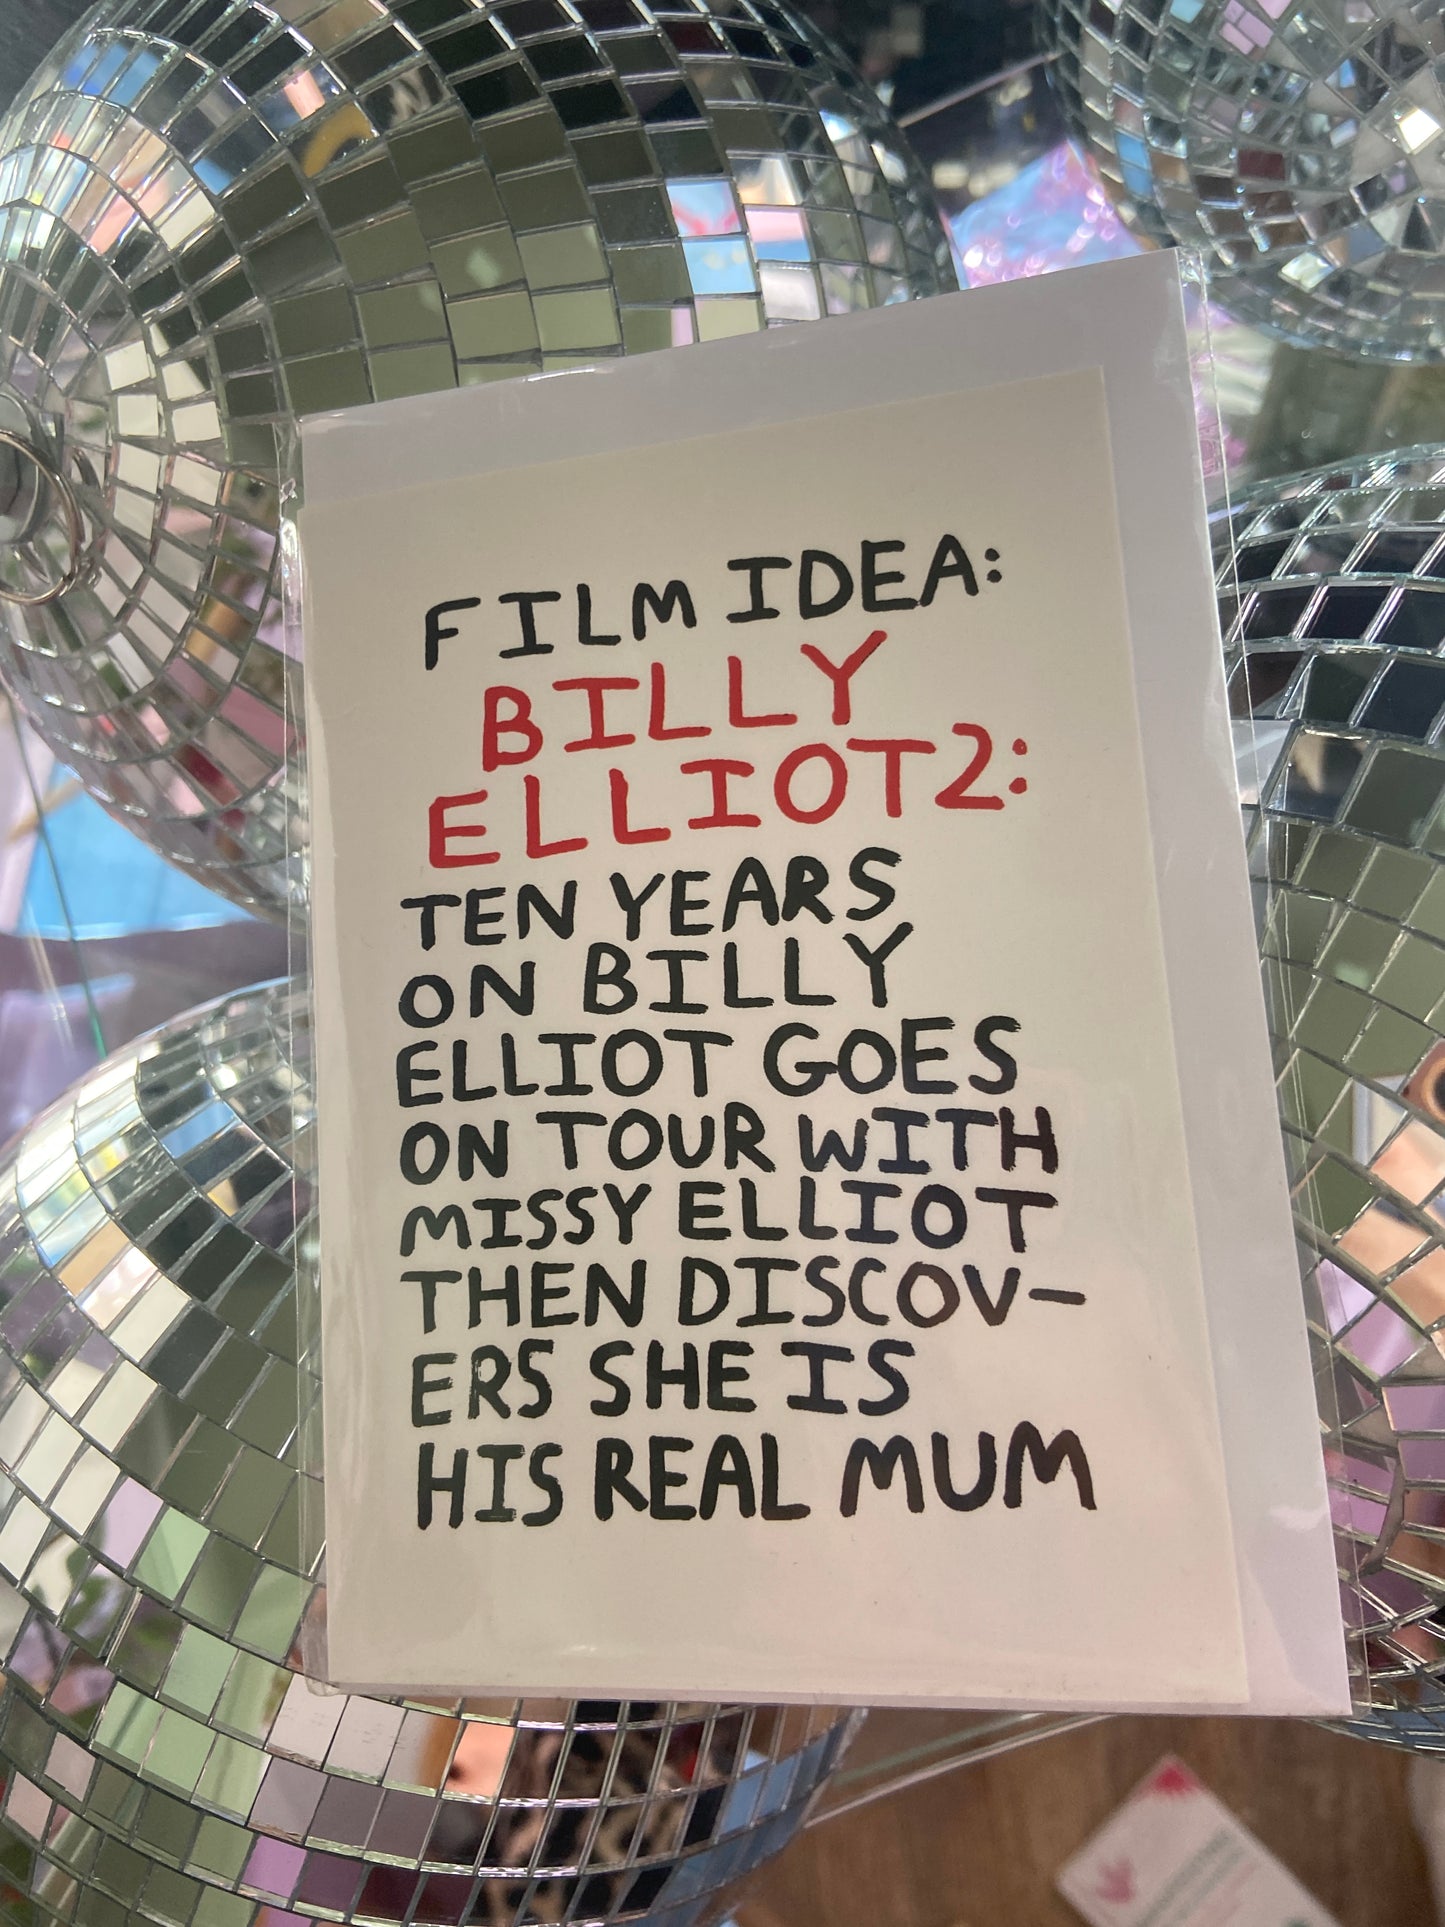 FILM IDEA:
BILLY
ELLIOT 2:
TEN YEARS
ON BILLY
ELLIOT GOES
ON TOUR WITH
MISSY ELLIOT
THEN DISCOV-
ERS SHE IS
HIS REAL MUM